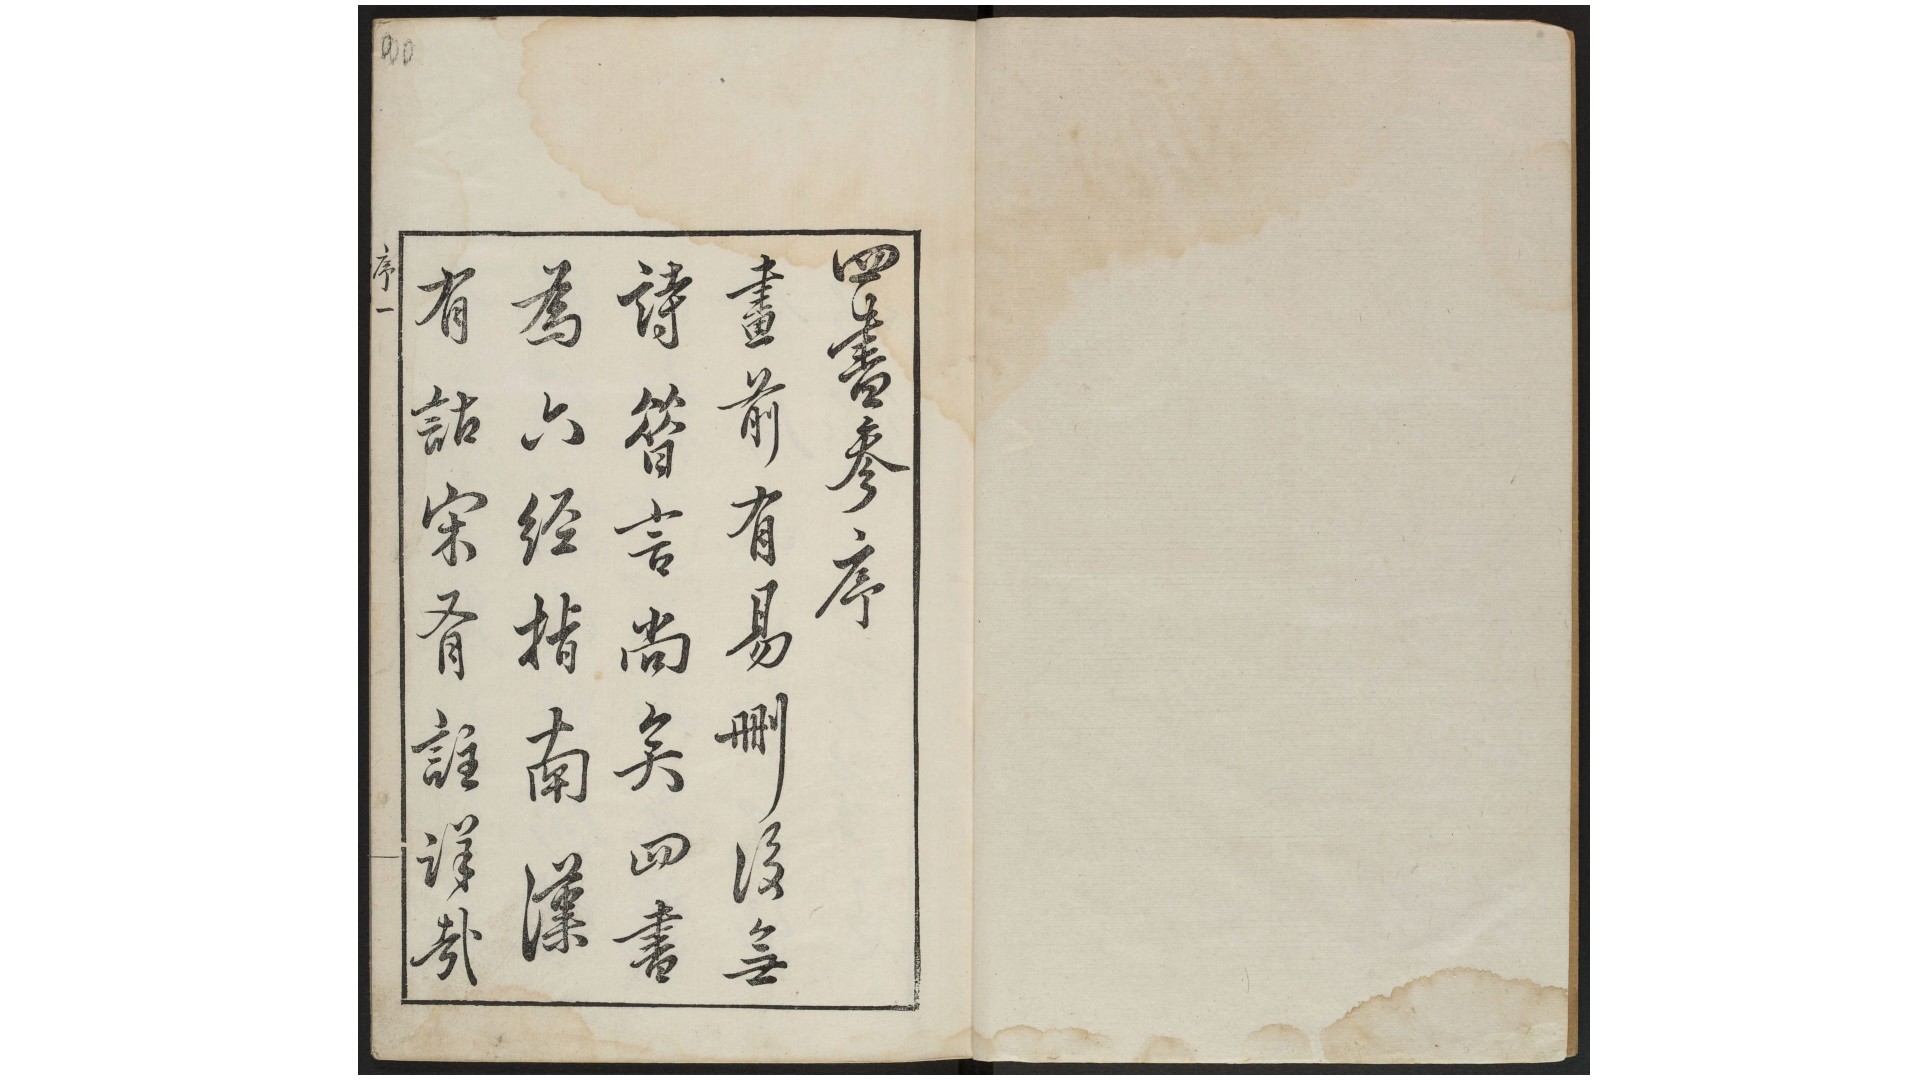 四書參序
畫前有易刪後無
詩昔言尚矣四書
為六經指南漢
有詁宋有註詳哉
序一